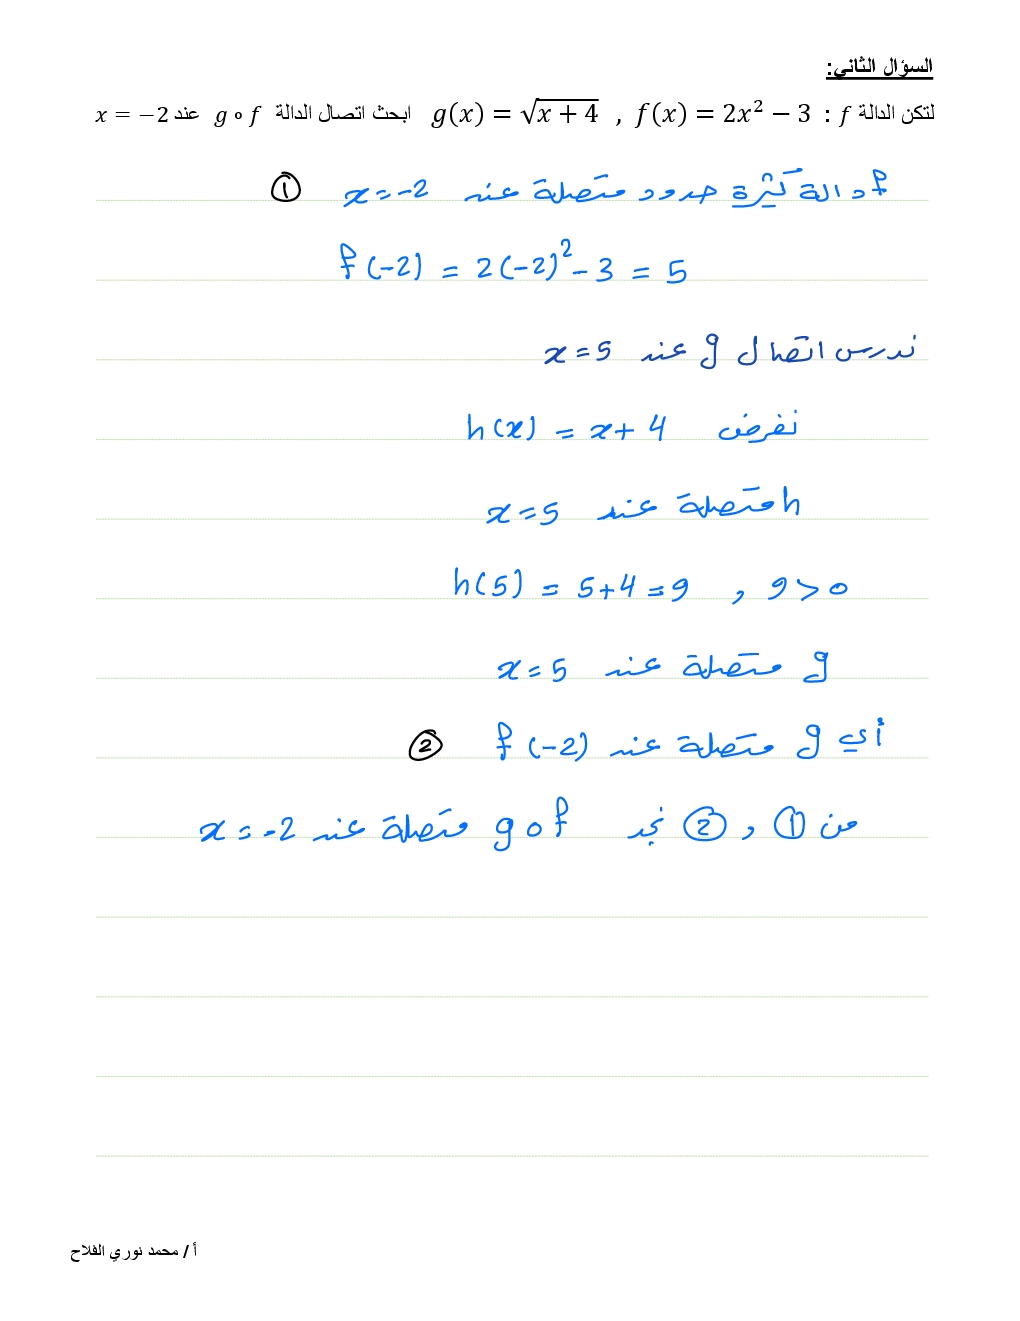 السؤال الثاني:
لتكن الدالة f : f(x) = 2x² − 3 , g(x) = √(x + 4) ابحث اتصال الدالة g ∘ f عند x = −2
f دالة كثيرة حدود متصلة عند x = -2 ①
f(-2) = 2(-2)² - 3 = 5
ندرس اتصال g عند x = 5
نفرض h(x) = x + 4
h متصلة عند x = 5
h(5) = 5 + 4 = 9 , 9 > 0
g متصلة عند x = 5
أي g متصلة عند f(-2) ②
من ① , ② نجد g o f متصلة عند x = -2
أ / محمد نوري الفلاح